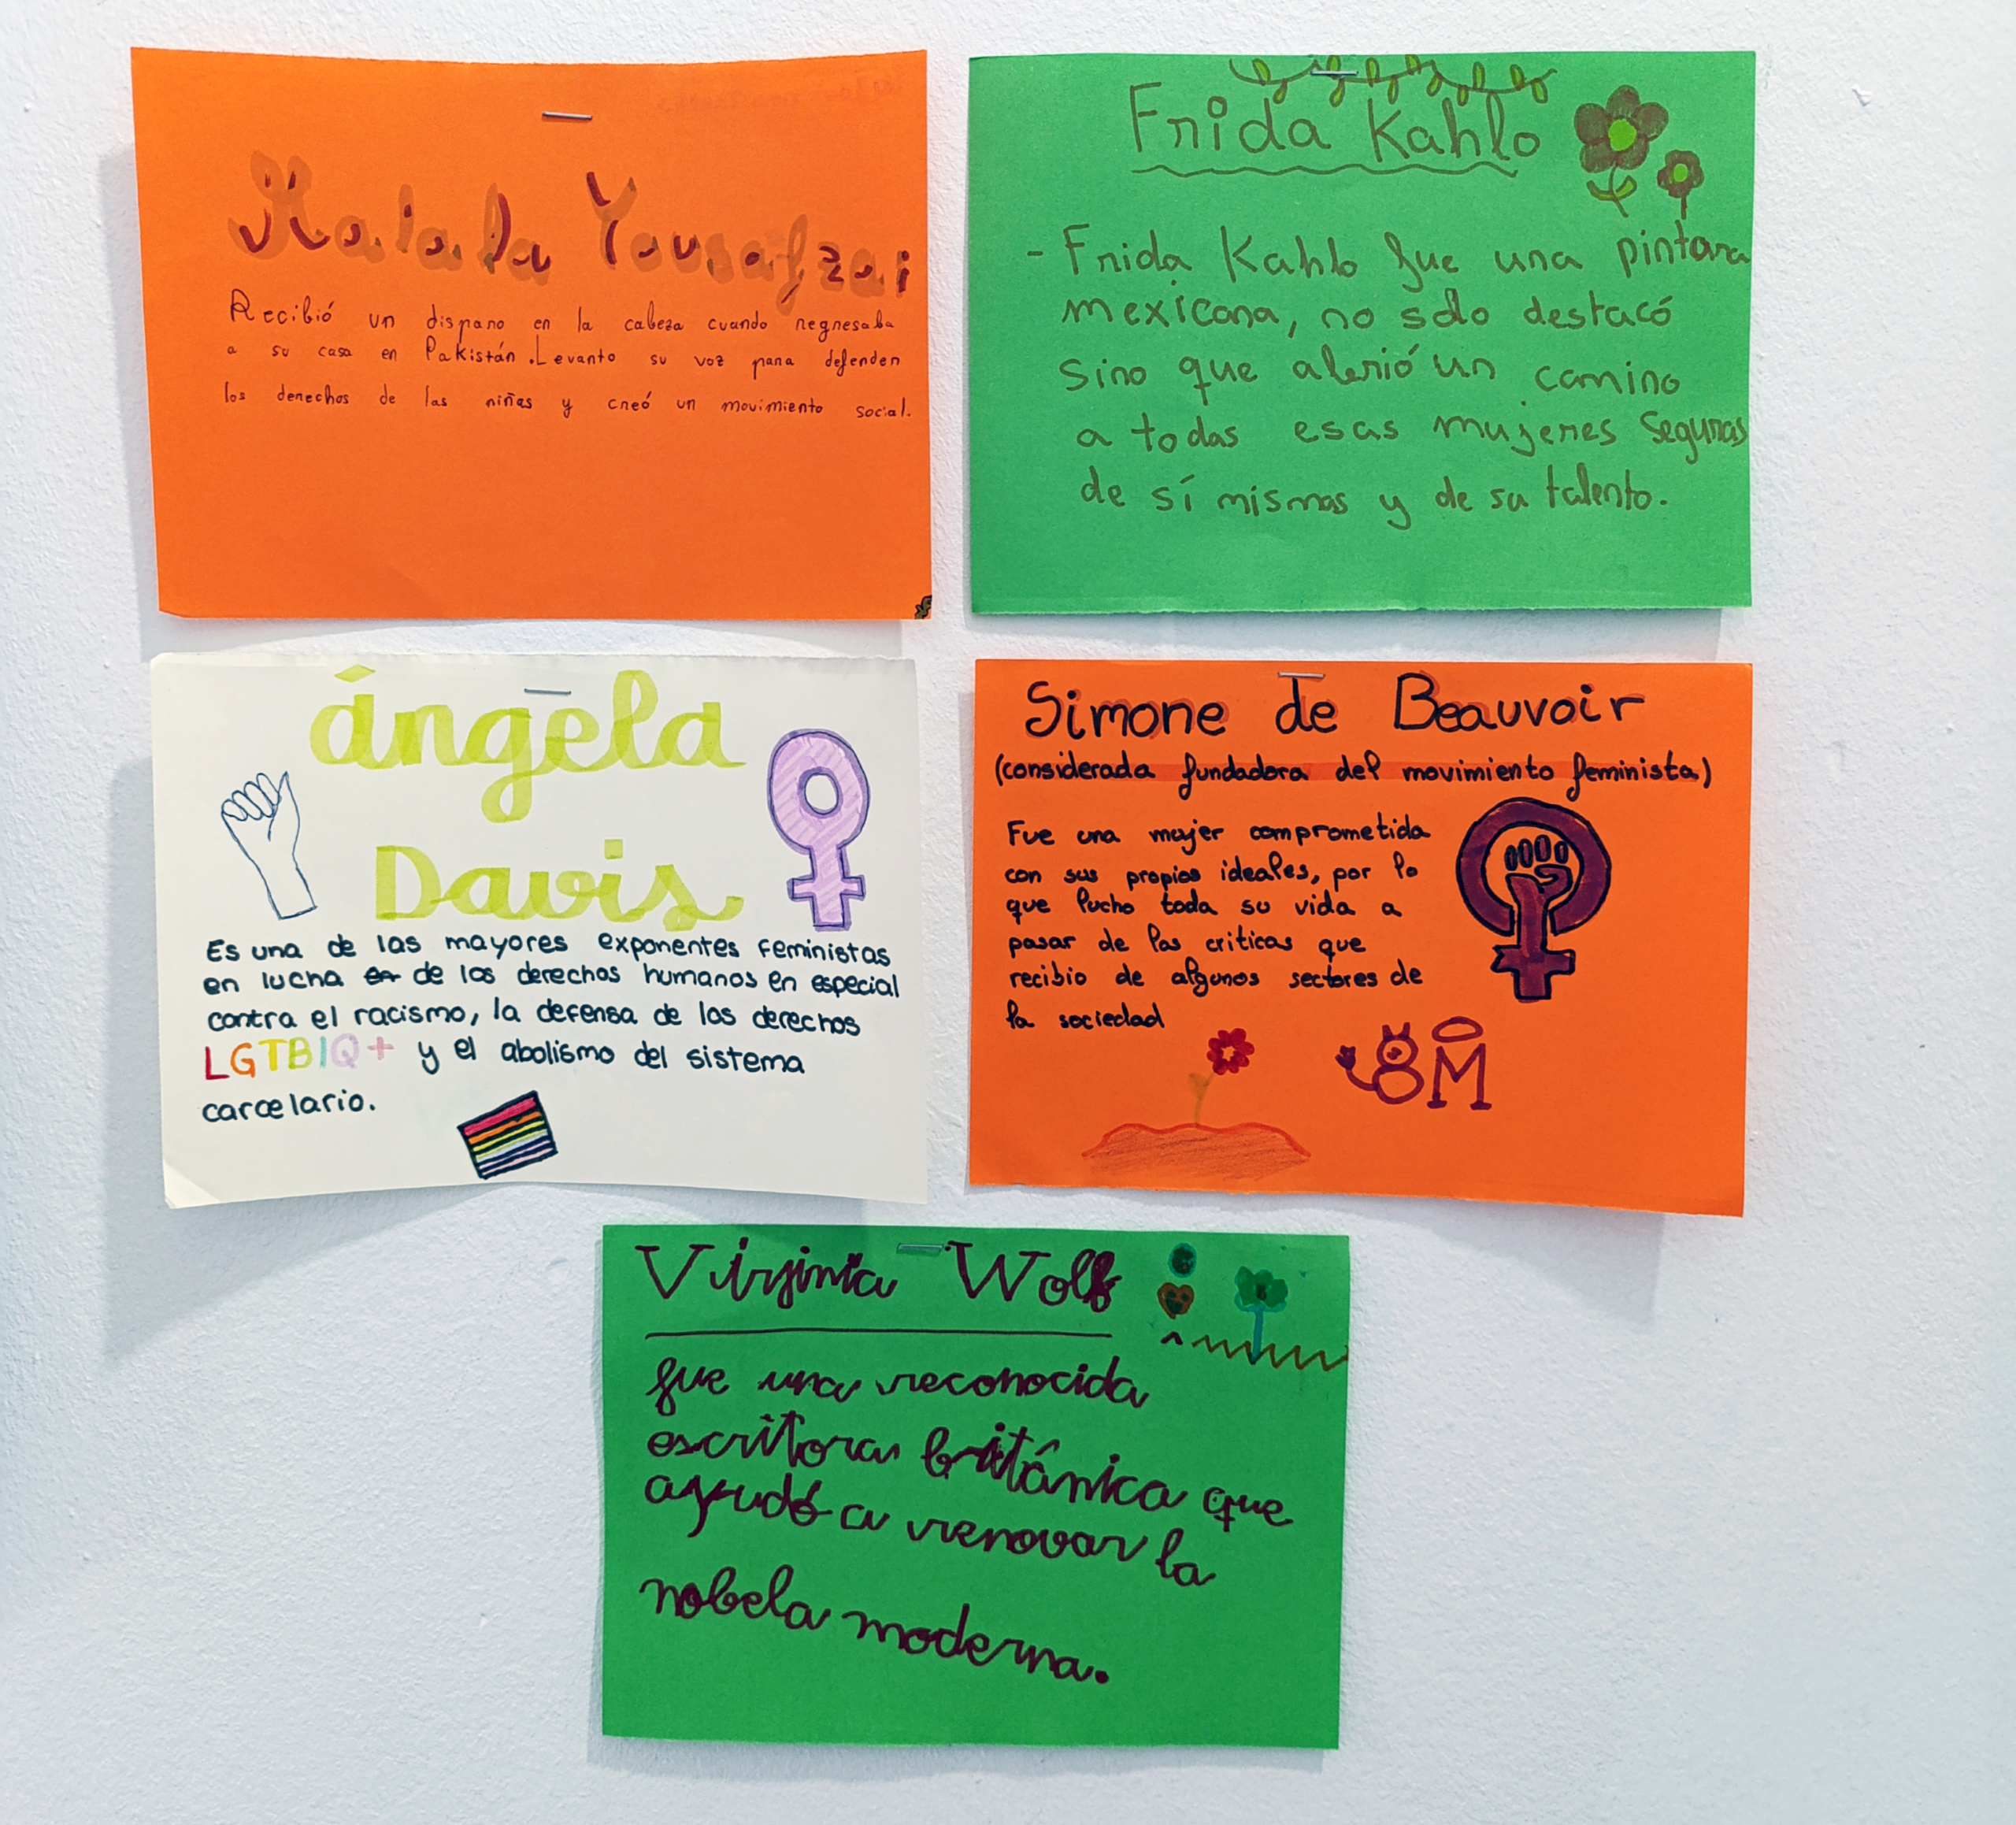 Malala Yousafzai
Recibió un disparo en la cabeza cuando regresaba
a su casa en Pakistán. Levanto su voz para defender
los derechos de las niñas y creó un movimiento social.
Frida Kahlo
- Frida Kahlo fue una pintora
mexicana, no solo destacó
sino que abrió un camino
a todas esas mujeres seguras
de sí mismas y de su talento.
ángela
Davis
Es una de las mayores exponentes feministas
en lucha en de los derechos humanos en especial
contra el racismo, la defensa de los derechos
LGTBIQ+ y el abolismo del sistema
carcelario.
Simone de Beauvoir
(considerada fundadora del movimiento feminista)
Fue una mujer comprometida
con sus propios ideales, por lo
que lucho toda su vida a
pasar de las criticas que
recibio de algunos sectores de
la sociedad
8M
Virginia Wolf
fue una reconocida
escritora británica que
ayudó a renovar la
nobela moderna.